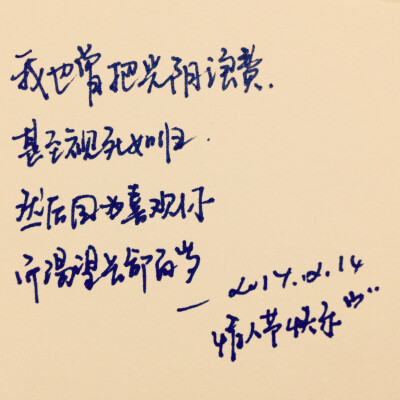 我也曾把光阴浪费.
甚至视死如归.
然后因为喜欢你
所渴望长命百岁
— 2017.02.14
情人节快乐